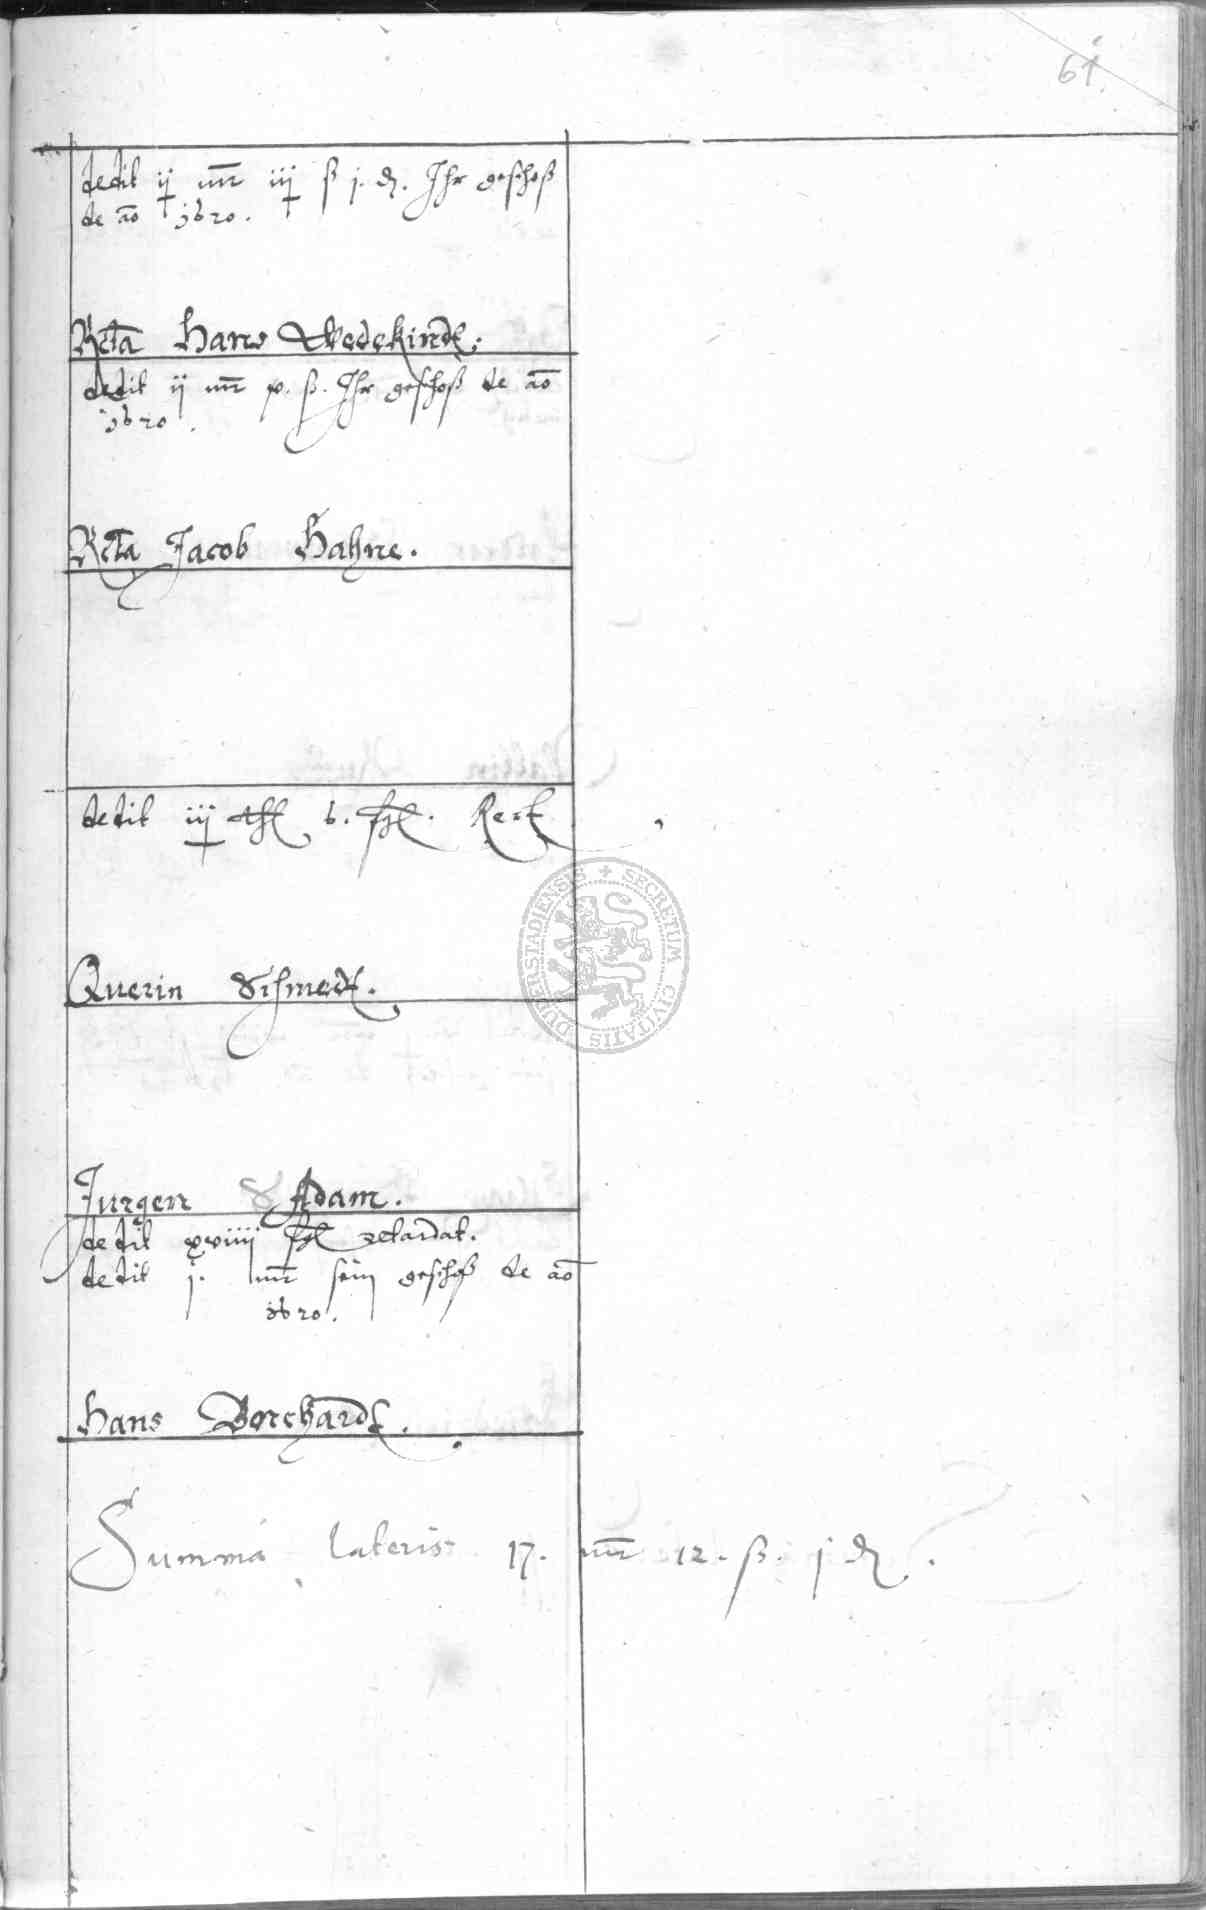 61.
dedit ij mr iiij ß j. ₰. Ihr geschoß
de ao 1620.
Rcta Hans Wedekindt.
dedit ij mr x. ß. Ihr geschoß de ao
1620.
Rcta Jacob Hahne.
dedit iiij
Querin Schmedt.
Jurgen Adam.
dedit xviiij retardat.
dedit j. mr sein geschoß de ao
1620.
Hans Borchardt.
Summa lateris 17. mr 12. ß. j ₰.
DUDERSTADIENSIS + SECRETUM CIVITATIS